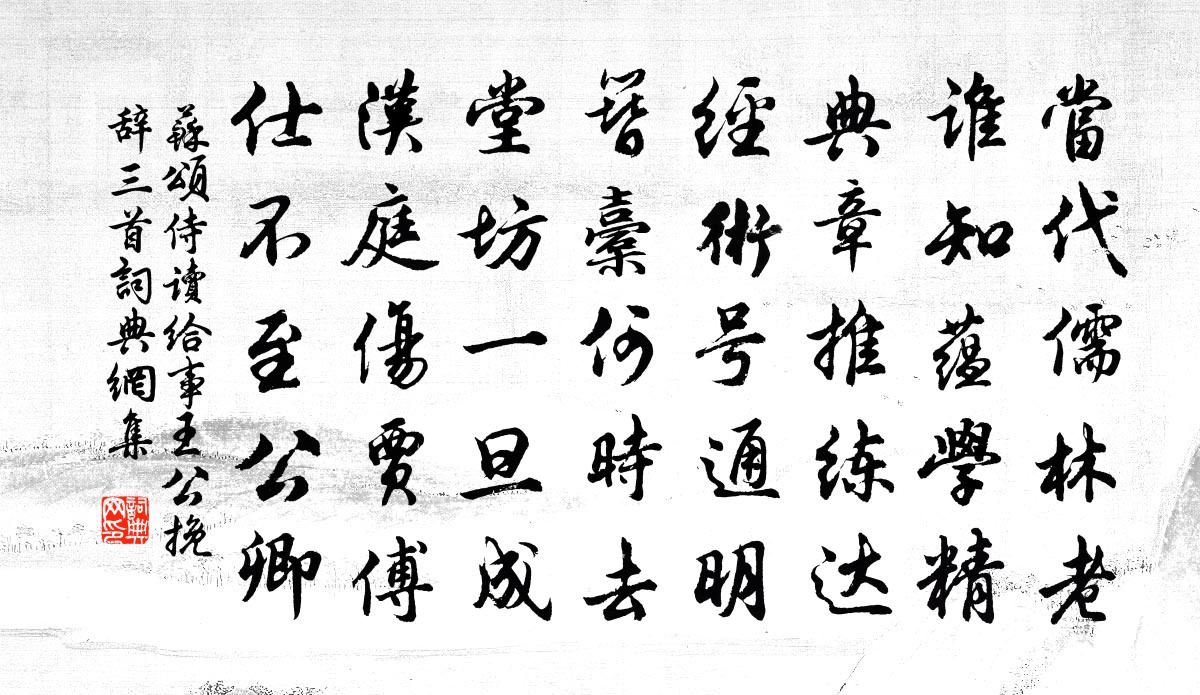 當代儒林老
誰知蘊學精
典章推练达
經術号通明
簪橐何時去
堂坊一旦成
漢庭傷賈傅
仕不至公卿
蘇頌侍讀給事王公挽
辞三首詞典網集
詞典
网印